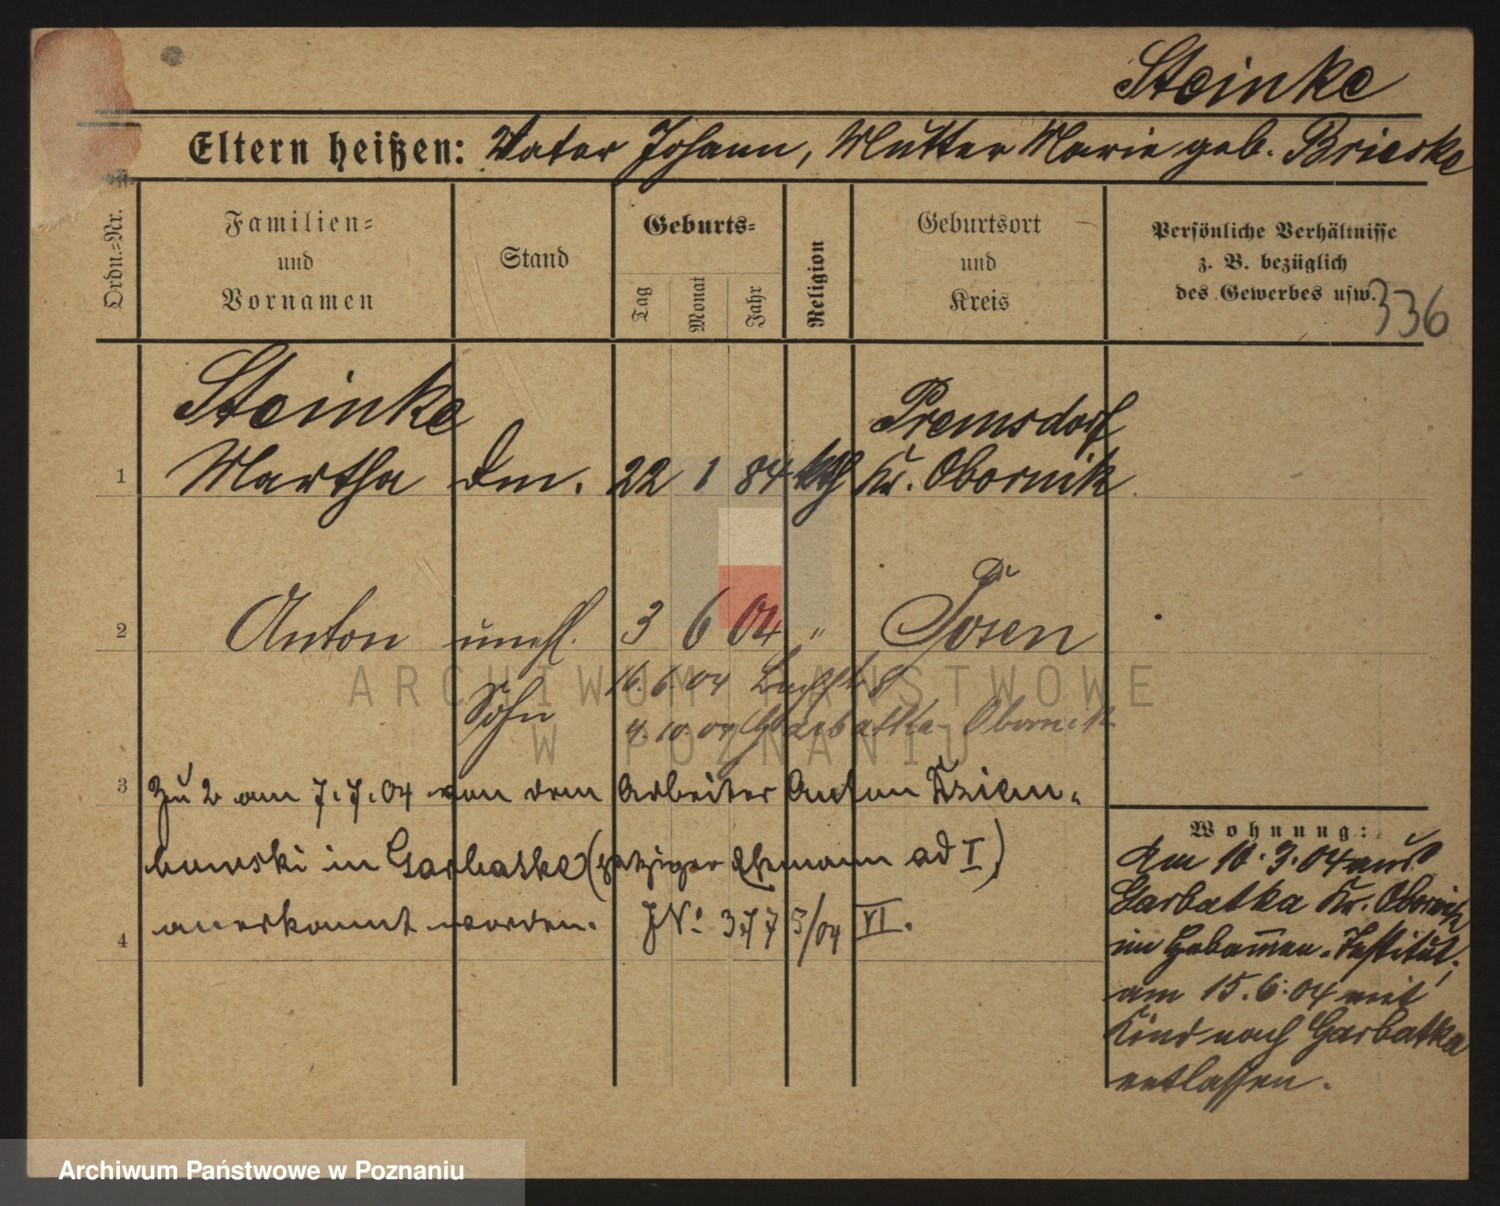 Steinke
Eltern heißen: Vater Johann, Mutter Marie geb. Brieske
Ordn.=Nr.
Familien=
und
Vornamen
Stand
Geburts=
Tag
Monat
Jahr
Religion
Geburtsort
und
Kreis
Persönliche Verhältnisse
z. B. bezüglich
des Gewerbes usw.
336
Steinke Premsdorf
1 Martha Dm. 22 1 84 kth Kr. Obornik
2 Anton unehl. 3 6 04 " Posen
Sohn 16.6.04
4.10.04 Garbatka Obornik
ARCHIWUM PAŃSTWOWE
W POZNANIU
3 Zu 2 am 7.7.04 von dem Arbeiter Anton
in Garbatka (jetziger Ehemann ad I)
4 anerkannt worden. JNo 377 5/04 VI.
Wohnung:
Am 10.3.04 aus
Garbatka Kr. Obornik
im Hebammen-Institut,
am 15.6.04 mit
Kind nach Garbatka
entlassen.
Archiwum Państwowe w Poznaniu